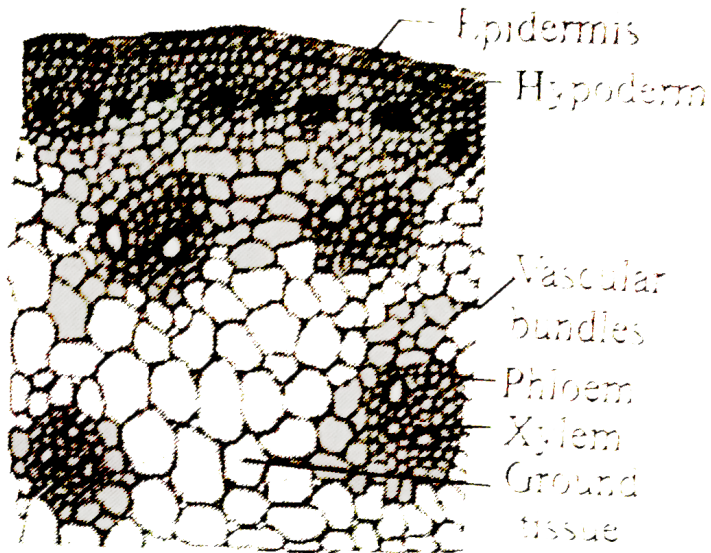 Epidermis
Hypoderm
Vascular
bundles
Phloem
Xylem
Ground
tissue